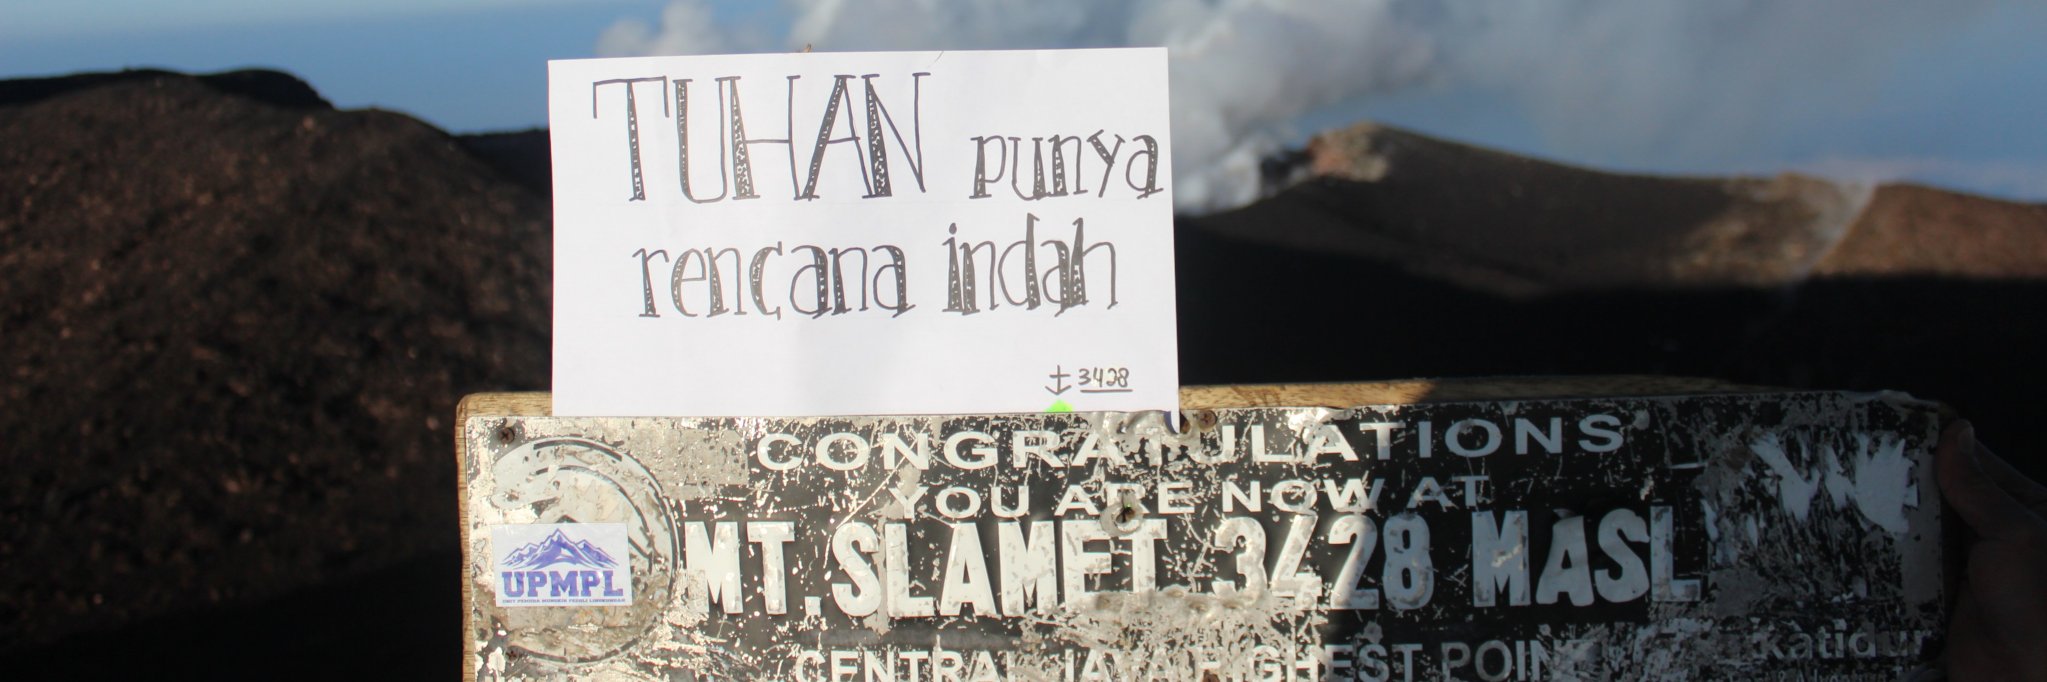 TUHAN punya
rencana indah
± 3428
CONGRATULATIONS
YOU ARE NOW AT
MT.SLAMET 3428 MASL
CENTRAL JAVA HIGHEST POINT
UPMPL